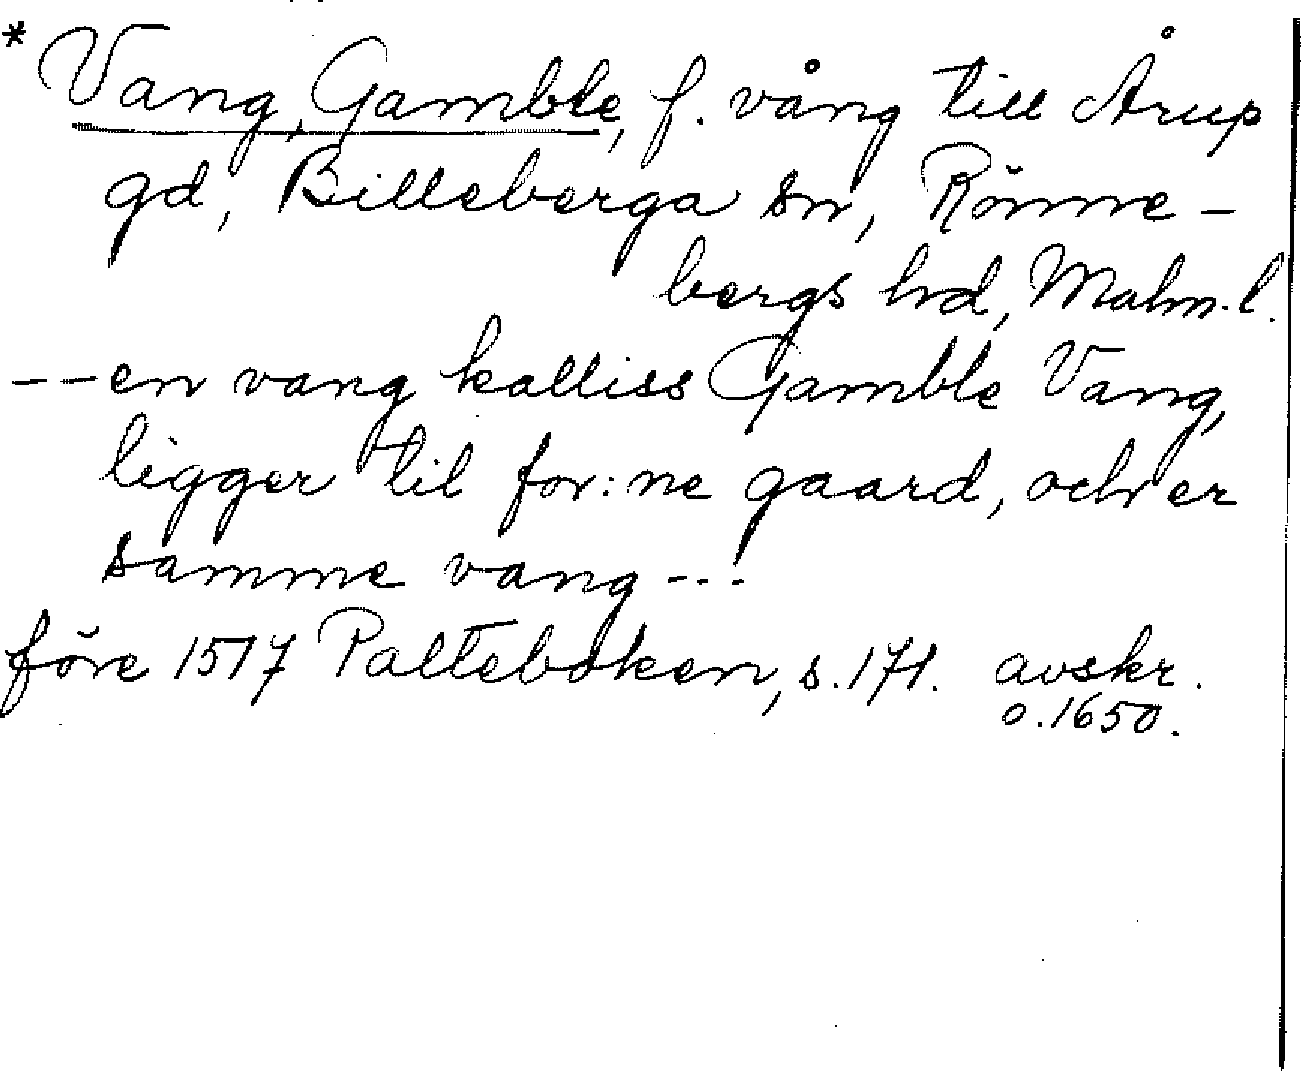 * Vang, Gamble, f. vång till Årup
gd, Billeberga sn, Rönne-
bergs hd, Malm.l.
-- en vang kalliss Gamble Vang,
ligger til for:ne gaard, och er
samme vang ---
före 1517 Palteboken, s.171. avskr.
o.1650.